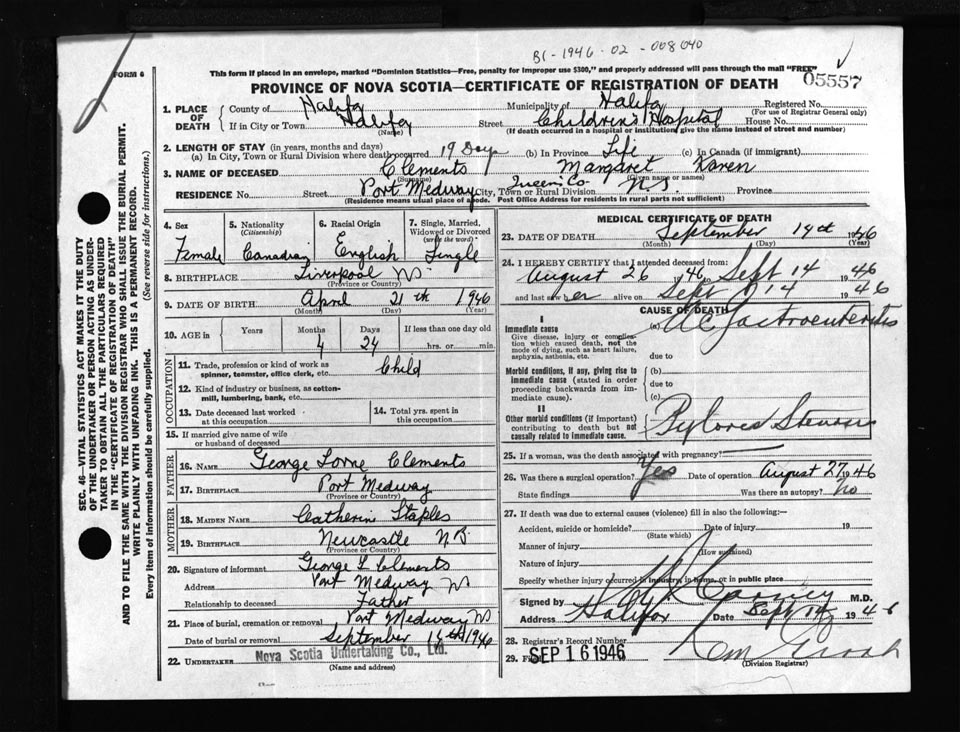 B1-1946-02-008040
FORM 6
This form if placed in an envelope, marked "Dominion Statistics—Free, penalty for improper use $300," and properly addressed will pass through the mail "FREE"
05557
PROVINCE OF NOVA SCOTIA—CERTIFICATE OF REGISTRATION OF DEATH
SEC. 46—VITAL STATISTICS ACT MAKES IT THE DUTY
OF THE UNDERTAKER OR PERSON ACTING AS UNDER-
TAKER TO OBTAIN ALL THE PARTICULARS REQUIRED
IN THE "CERTIFICATE OF REGISTRATION OF DEATH"
AND TO FILE THE SAME WITH THE DIVISION REGISTRAR WHO SHALL ISSUE THE BURIAL PERMIT.
WRITE PLAINLY WITH UNFADING INK. THIS IS A PERMANENT RECORD.
Every item of information should be carefully supplied. (See reverse side for instructions.)
1. PLACE OF DEATH County of Halifax Municipality of Halifax Registered No.
(For use of Registrar General only)
If in City or Town Halifax Street Children's Hospital House No.
(Name) (If death occurred in a hospital or institution, give the name instead of street and number)
2. LENGTH OF STAY (in years, months and days)
(a) In City, Town or Rural Division where death occurred 19 Days (b) In Province Life (c) In Canada (if immigrant)
3. NAME OF DECEASED Clements Margaret Karen
(Surname) (Given name or names)
RESIDENCE No. Street Port Medway City, Town or Rural Division Queens Co N.S. Province
(Residence means usual place of abode. Post Office Address for residents in rural parts not sufficient)
4. Sex 5. Nationality (Citizenship) 6. Racial Origin 7. Single, Married, Widowed or Divorced (write the word)
Female Canadian English Single
8. BIRTHPLACE Liverpool NS
(Province or Country)
9. DATE OF BIRTH April 21th 1946
(Month) (Day) (Year)
10. AGE in Years Months Days If less than one day old
4 24 hrs. or min.
OCCUPATION
11. Trade, profession or kind of work as spinner, teamster, office clerk, etc. Child
12. Kind of industry or business, as cotton-mill, lumbering, bank, etc.
13. Date deceased last worked at this occupation 14. Total yrs. spent in this occupation
15. If married give name of wife or husband of deceased
FATHER
16. NAME George Lorne Clements
17. BIRTHPLACE Port Medway
(Province or Country)
MOTHER
18. MAIDEN NAME Catherine Staples
19. BIRTHPLACE Newcastle N.B.
(Province or Country)
20. Signature of informant George L Clements
Address Port Medway NS
Relationship to deceased Father
21. Place of burial, cremation or removal Port Medway NS
Date of burial or removal September 16th 1946
22. UNDERTAKER Nova Scotia Undertaking Co., Ltd.
(Name and address)
MEDICAL CERTIFICATE OF DEATH
23. DATE OF DEATH September 14th 1946
(Month) (Day) (Year)
24. I HEREBY CERTIFY that I attended deceased from:
August 26 1946 Sept 14 1946
and last saw her alive on Sept 14 1946
CAUSE OF DEATH
I
Immediate cause (a) Ac Gastroenteritis
Give disease, injury or complication which caused death, not the mode of dying, such as heart failure, asphyxia, asthenia, etc. due to
Morbid conditions, if any, giving rise to immediate cause (stated in order proceeding backwards from immediate cause). (b)
due to
(c)
II
Other morbid conditions (if important) contributing to death but not causally related to immediate cause. Pyloric Stenosis
25. If a woman, was the death associated with pregnancy?
26. Was there a surgical operation? Yes Date of operation August 27 1946
State findings Was there an autopsy? No
27. If death was due to external causes (violence) fill in also the following:—
Accident, suicide or homicide? Date of injury 19
(State which)
Manner of injury
(How sustained)
Nature of injury
Specify whether injury occurred in industry, in home, or in public place
Signed by M.D.
Address Halifax Date Sept 14 1946
28. Registrar's Record Number
29. Filed SEP 16 1946
(Division Registrar)